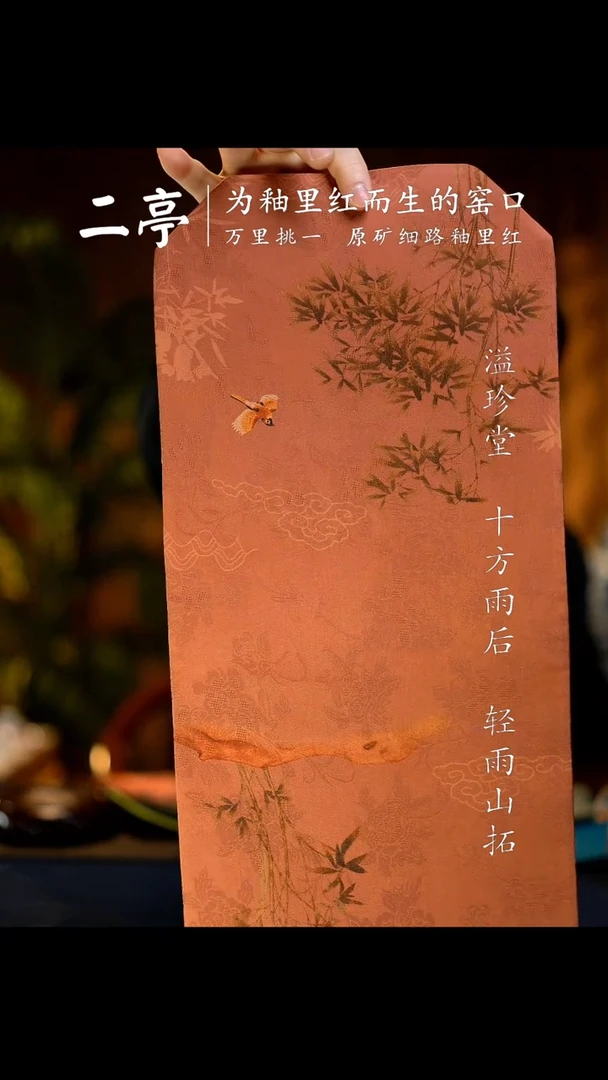 二亭
为釉里红而生的窑口
万里挑一 原矿细路釉里红
溢珍堂 十方雨后 轻雨山拓